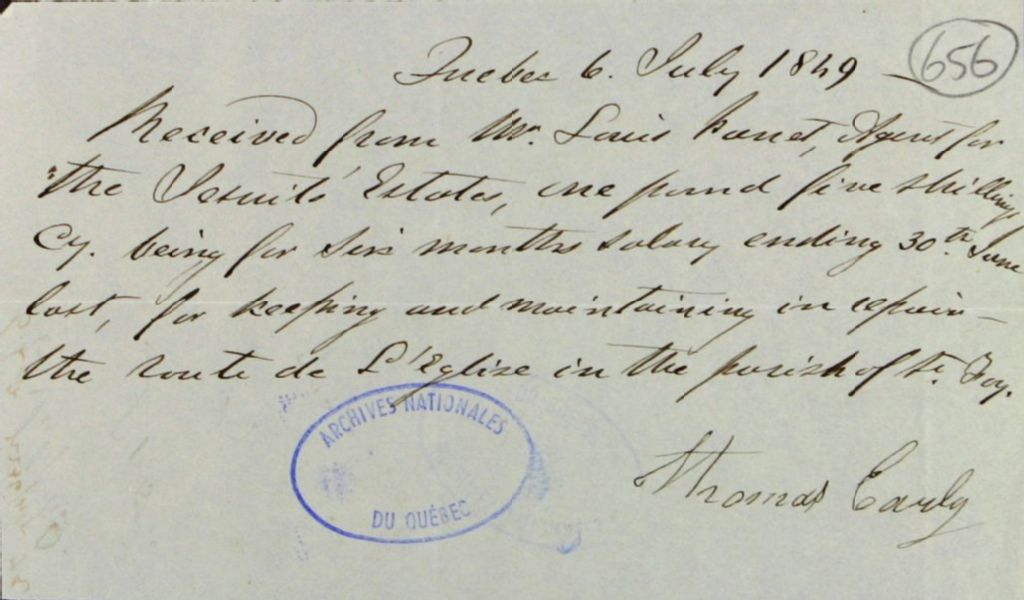 656
Quebec 6. July 1849
Received from Mr. Louis Panet, Agent for
the Jesuits' Estates, one pound five shillings
Cy. being for six months salary ending 30th. June
last, for keeping and maintaining in repair
the route de L'Eglise in the parish of St. Foy.
Thomas Early
ARCHIVES NATIONALES
DU QUÉBEC